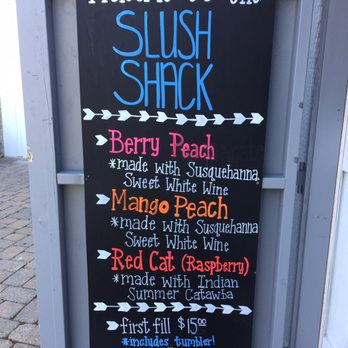 SLUSH
SHACK
Berry Peach
*made with Susquehanna
Sweet White Wine
Mango Peach
*made with Susquehanna
Sweet White Wine
Red Cat (Raspberry)
*made with Indian
Summer Catawba
first fill $15.00
*includes tumbler!